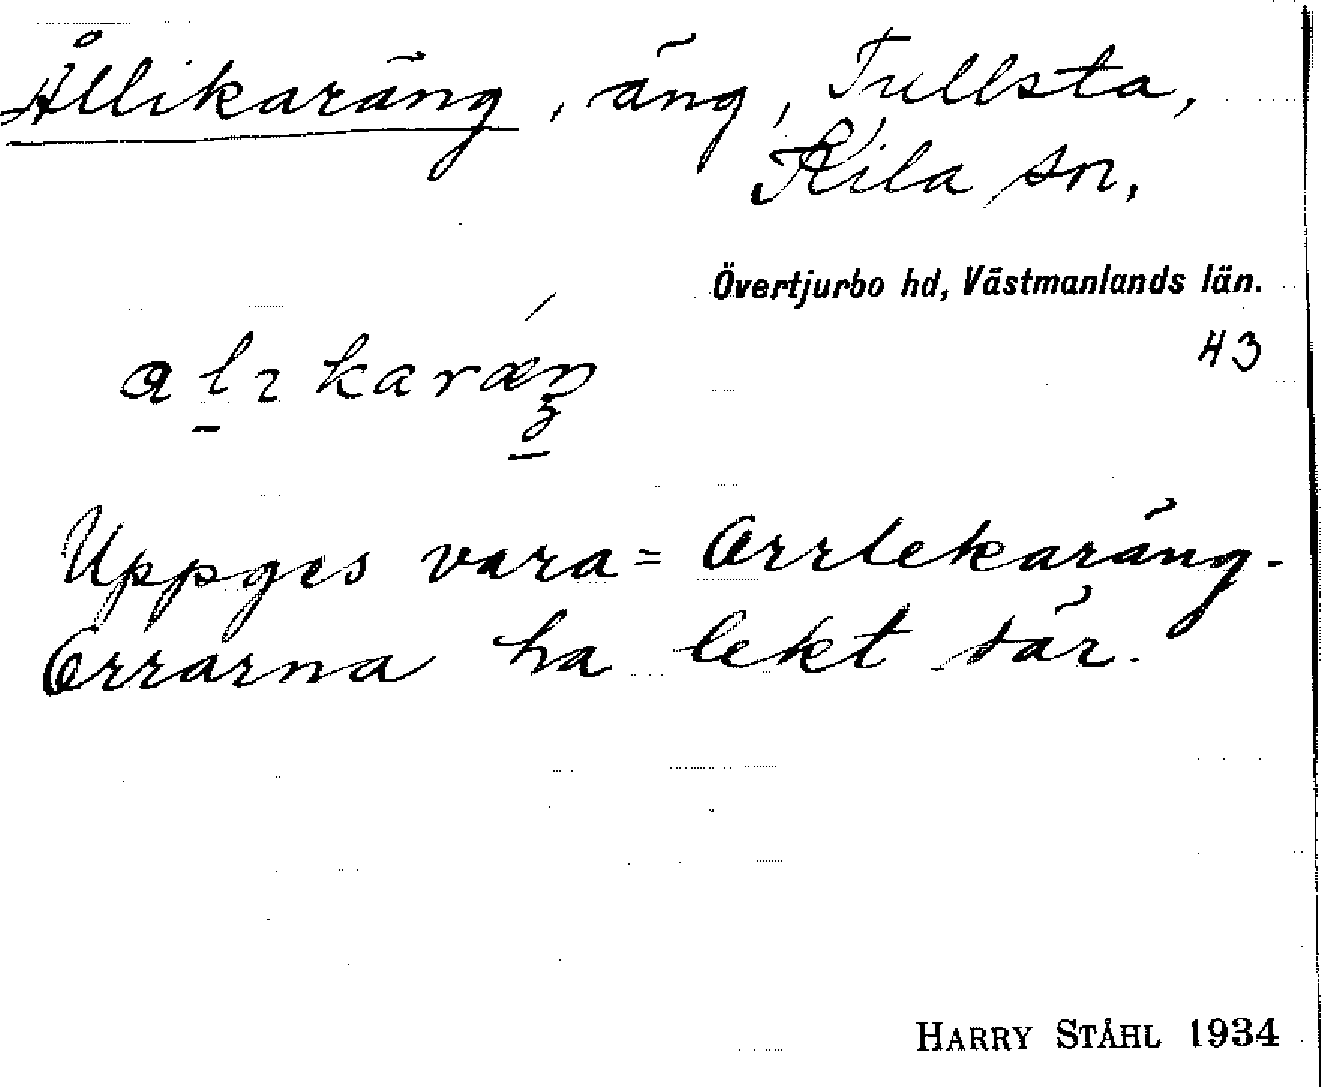 Ållikaräng, äng, Tullsta,
Kila sn,
Övertjurbo hd, Västmanlands län.
43
Uppges vara = Orrlekaräng.
Orrarna ha lekt där.
HARRY STÅHL 1934